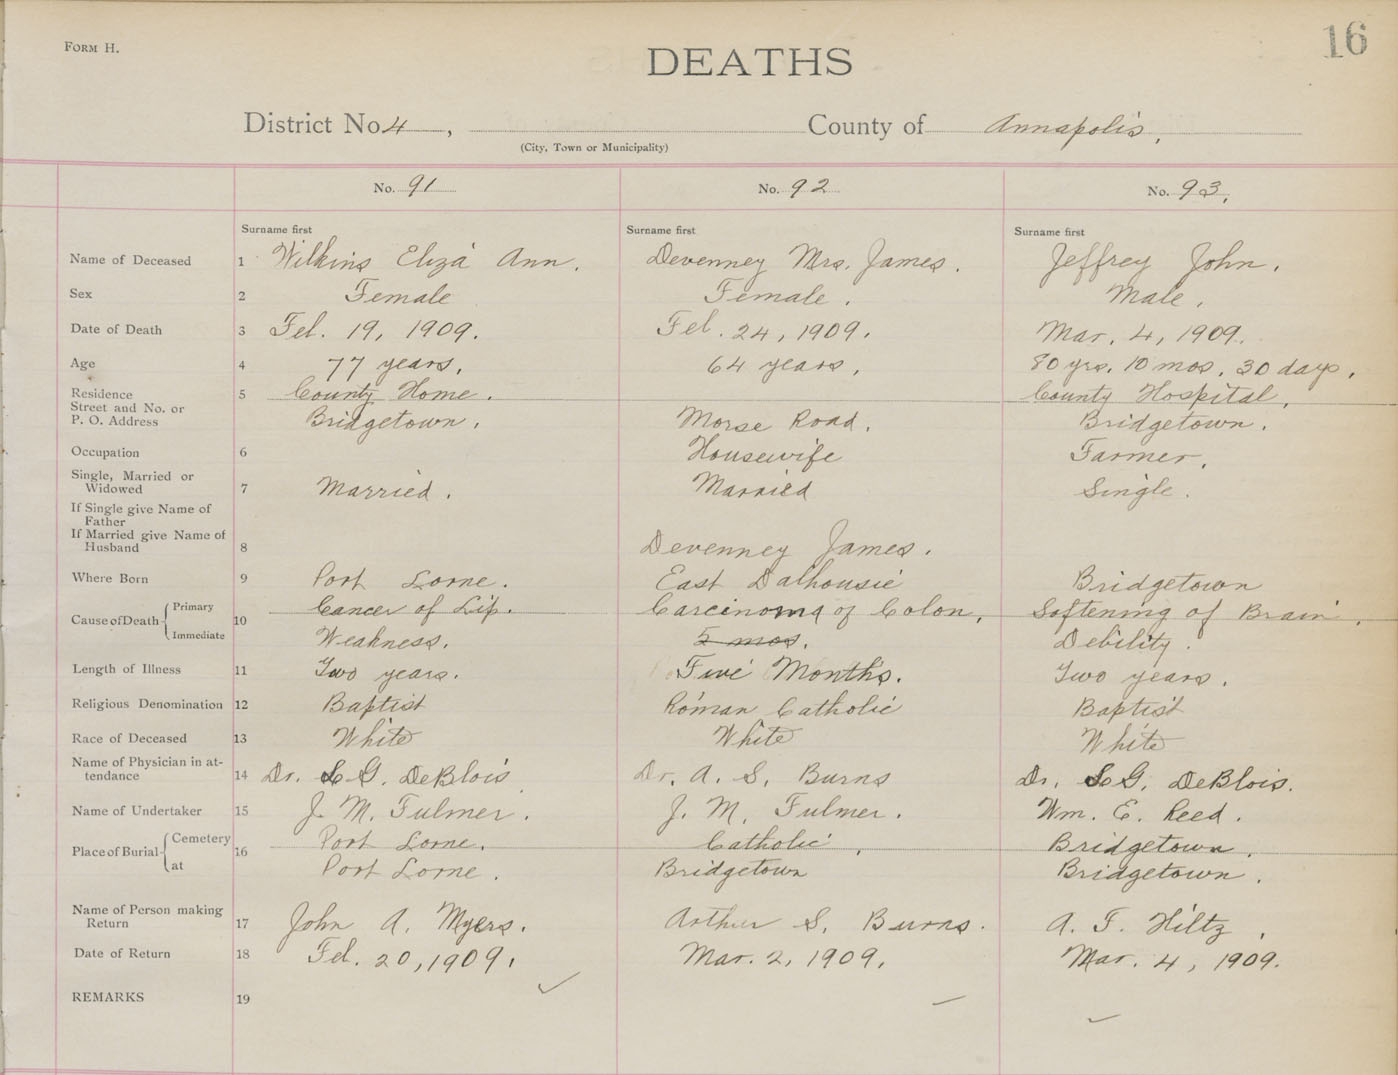 Form H.
16
DEATHS
District No 4 , County of Annapolis,
(City, Town or Municipality)
No. 91 No. 92 No. 93,
Surname first Surname first Surname first
Name of Deceased 1 Wilkins Eliza Ann. Devenney Mrs. James. Jeffrey John.
Sex 2 Female Female. Male.
Date of Death 3 Feb. 19, 1909. Feb. 24, 1909. Mar. 4, 1909.
Age 4 77 years. 64 years. 80 yrs. 10 mos. 30 days.
Residence 5 County Home. County Hospital,
Street and No. or
P. O. Address Bridgetown. Morse Road. Bridgetown.
Occupation 6 Housewife Farmer.
Single, Married or
Widowed 7 Married. Married Single.
If Single give Name of
Father
If Married give Name of
Husband 8 Devenney James.
Where Born 9 Port Lorne. East Dalhousie Bridgetown
Cause of Death Primary 10 Cancer of Lip. Carcinoma of Colon, Softening of Brain.
Immediate Weakness. 5 mos. Debility.
Length of Illness 11 Two years. Five Months. Two years.
Religious Denomination 12 Baptist Roman Catholic Baptist
Race of Deceased 13 White White White
Name of Physician in at-
tendance 14 Dr. L G. DeBlois Dr. A. S. Burns Dr. L G. DeBlois.
Name of Undertaker 15 J. M. Fulmer. J. M. Fulmer. Wm. E. Reed.
Place of Burial Cemetery 16 Port Lorne. Catholic. Bridgetown.
at Port Lorne. Bridgetown Bridgetown.
Name of Person making
Return 17 John A. Myers. Arthur S. Burns. A. F. Hiltz,
Date of Return 18 Feb. 20, 1909. Mar. 2, 1909. Mar. 4, 1909.
REMARKS 19